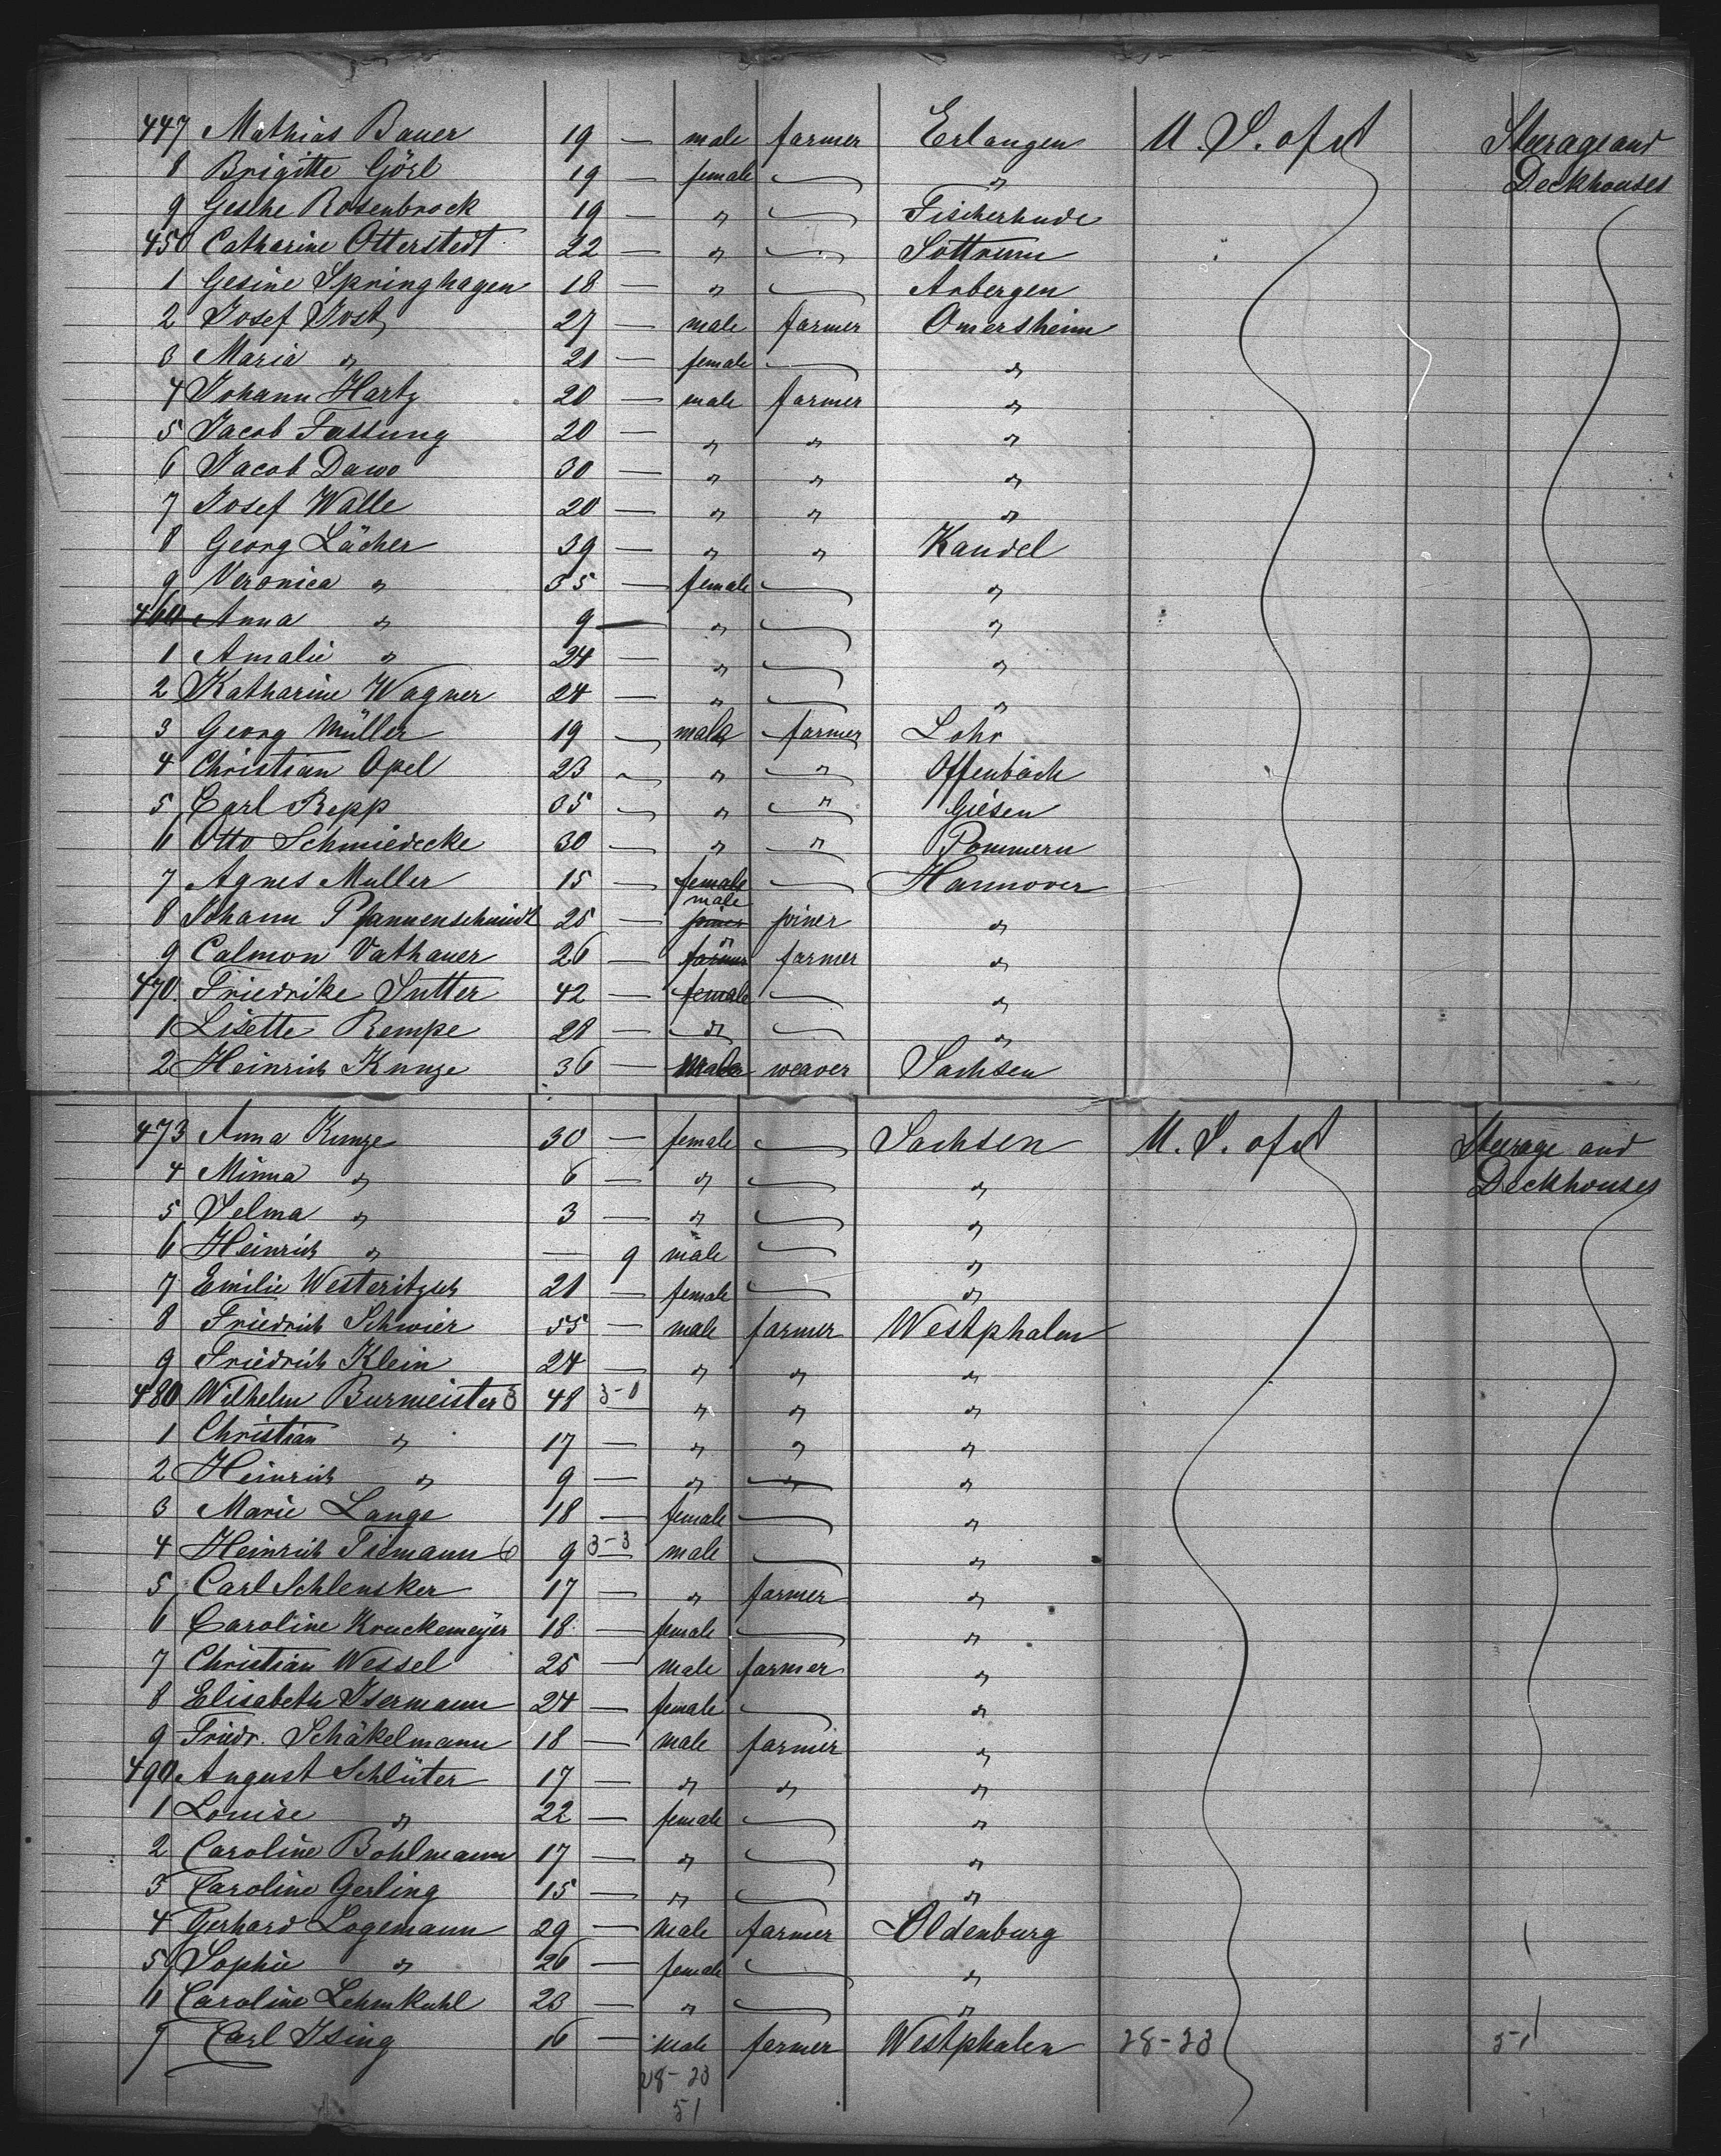 447 Mathias Bauer 19 — male farmer Erlangen U. S. of A Steerage and
8 Brigitte Görl 19 — female — " Deckhouses
9 Gesche Rosenbrock 19 — " — Fischerhude
450 Catharine Otterstedt 22 — " — Sottrum
1 Gesine Springhagen 18 — " — Arbergen
2 Josef Jost 27 — male farmer Omersheim
3 Maria " 21 — female — "
4 Johann Hartz 20 — male farmer "
5 Jacob Fassung 20 — " " "
6 Jacob Dawo 30 — " " "
7 Josef Walle 20 — " " "
8 Georg Lächer 39 — " " Kandel
9 Veronica " 35 — female — "
460 Anna " 9 — " — "
1 Amalie " 24 — " — "
2 Katharine Wagner 24 — " — "
3 Georg Müller 19 — male farmer Lohr
4 Christian Opel 23 — " " Offenbach
5 Carl Repp 35 — " " Giesen
6 Otto Schmiedecke 30 — " " Pommern
7 Agnes Muller 15 — female — Hannover
8 Johann Pfannenschmidt 25 — male joiner "
9 Calmon Vathauer 26 — " farmer "
470 Friedrike Sutter 42 — female — "
1 Lisette Rempe 28 — " — "
2 Heinrich Kunze 36 — male weaver Sachsen
473 Anna Kunze 30 — female — Sachsen U. S. of A Steerage and
4 Minna " 6 — " — " Deckhouses
5 Selma " 3 — " — "
6 Heinrich " — 9 male — "
7 Emilie Westeritzsch 21 — female — "
8 Friedrich Schwier 55 — male farmer Westphalen
9 Friedrich Klein 24 — " " "
480 Wilhelm Burmeister 3 48 3-0 " " "
1 Christian " 17 — " " "
2 Heinrich " 9 — " — "
3 Marie Lange 18 — female — "
4 Heinrich Tiemann 6 9 3-3 male — "
5 Carl Schlensker 17 — " farmer "
6 Caroline Kruckemeyer 18 — female — "
7 Christian Wessel 25 — male farmer "
8 Elisabeth Isermann 24 — female — "
9 Friedr. Schäkelmann 18 — male farmer "
490 August Schlüter 17 — " " "
1 Louise " 22 — female — "
2 Caroline Bohlmann 17 — " — "
3 Caroline Gerling 15 — " — "
4 Gerhard Logemann 29 — male farmer Oldenburg
5 Sophie " 26 — female — "
6 Caroline Lehmkuhl 23 — " — "
7 Carl Ising 16 — male farmer Westphalen 28-23 51
28-23
51